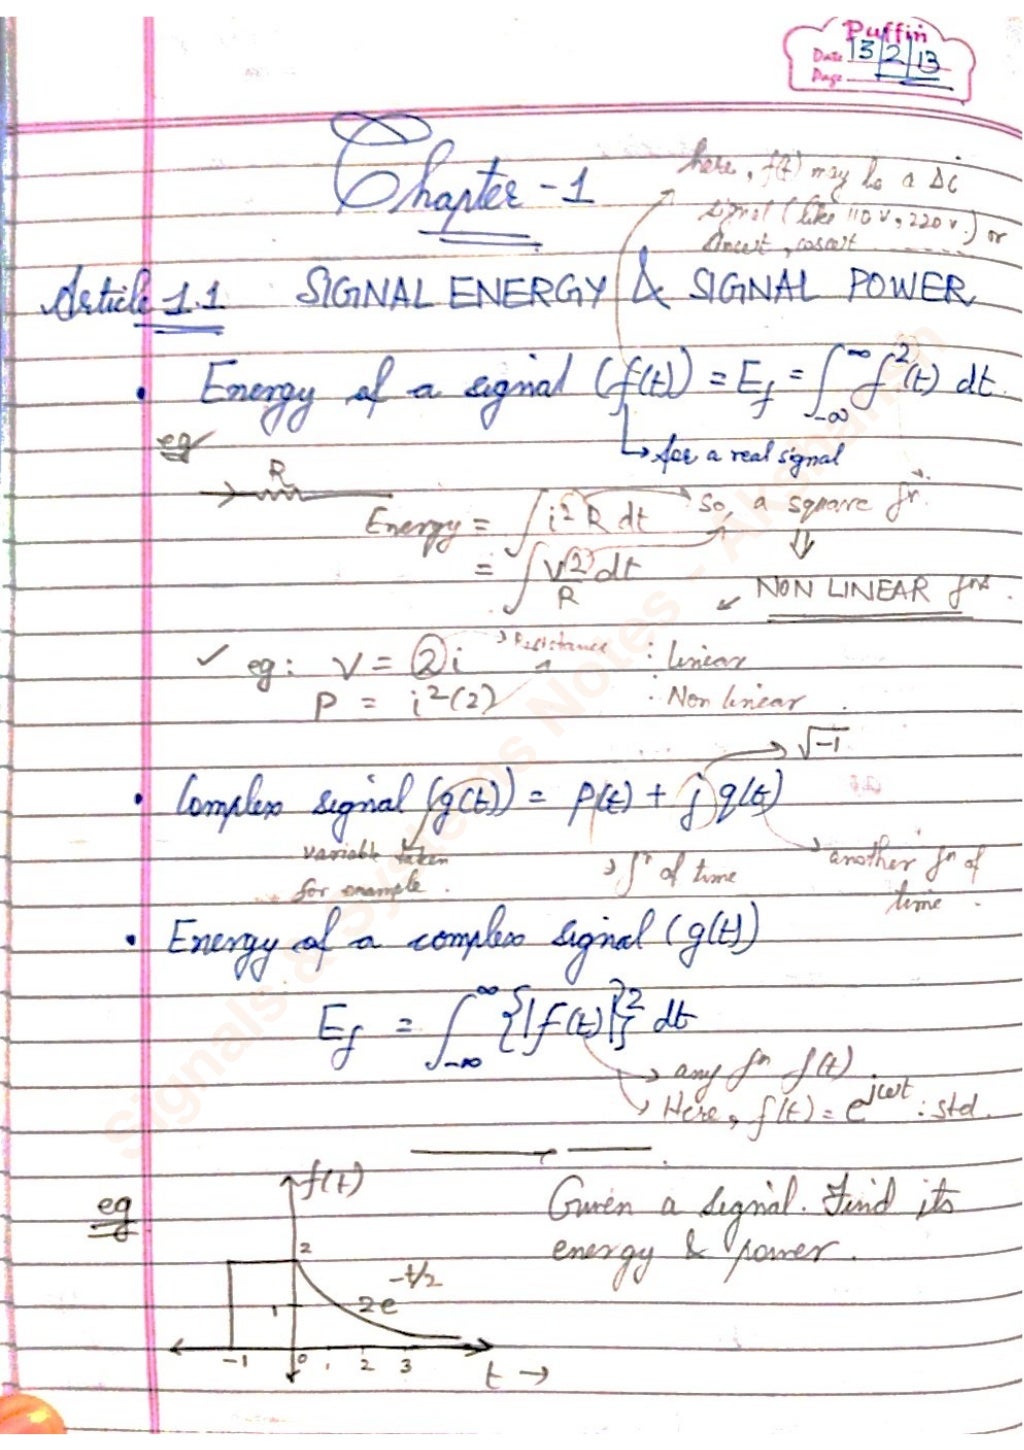 Puffin
Date 13/2/13
Page
Chapter - 1
here, f(t) may be a DC
signal (like 110 v, 220 v.) or
sinωt, cosωt ......
Article 1.1 SIGNAL ENERGY & SIGNAL POWER
• Energy of a signal (f(t)) = E_f = ∫_{-∞}^{∞} f²(t) dt.
↳ for a real signal
eg
R
Energy = ∫ i² R dt → So, a square fⁿ.
= ∫ V²/R dt
⇓
NON LINEAR fns.
✓ eg: V = 2i → Resistance : linear
P = i²(2) : Non linear
→ √-1
• Complex signal (g(t)) = p(t) + j q(t)
variable taken for example.
→ fⁿ of time
→ another fⁿ of time.
• Energy of a complex signal (g(t))
E_f = ∫_{-∞}^{∞} {|f(t)|}² dt
→ any fⁿ f(t)
→ Here, f(t) = e^{jωt} : std.
eg
f(t)
Given a signal. Find its
energy & power.
2
2e^{-t/2}
1
-1 0 1 2 3
t →
Signals & Systems Notes - Aksharam